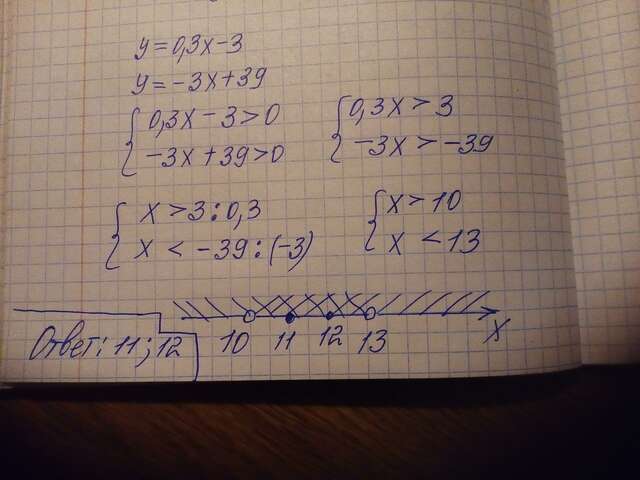 y=0,3x-3
y=-3x+39
{0,3x-3>0
-3x+39>0
{0,3x>3
-3x>-39
{x>3:0,3
x<-39:(-3)
{x>10
x<13
10 11 12 13 x
Ответ: 11; 12